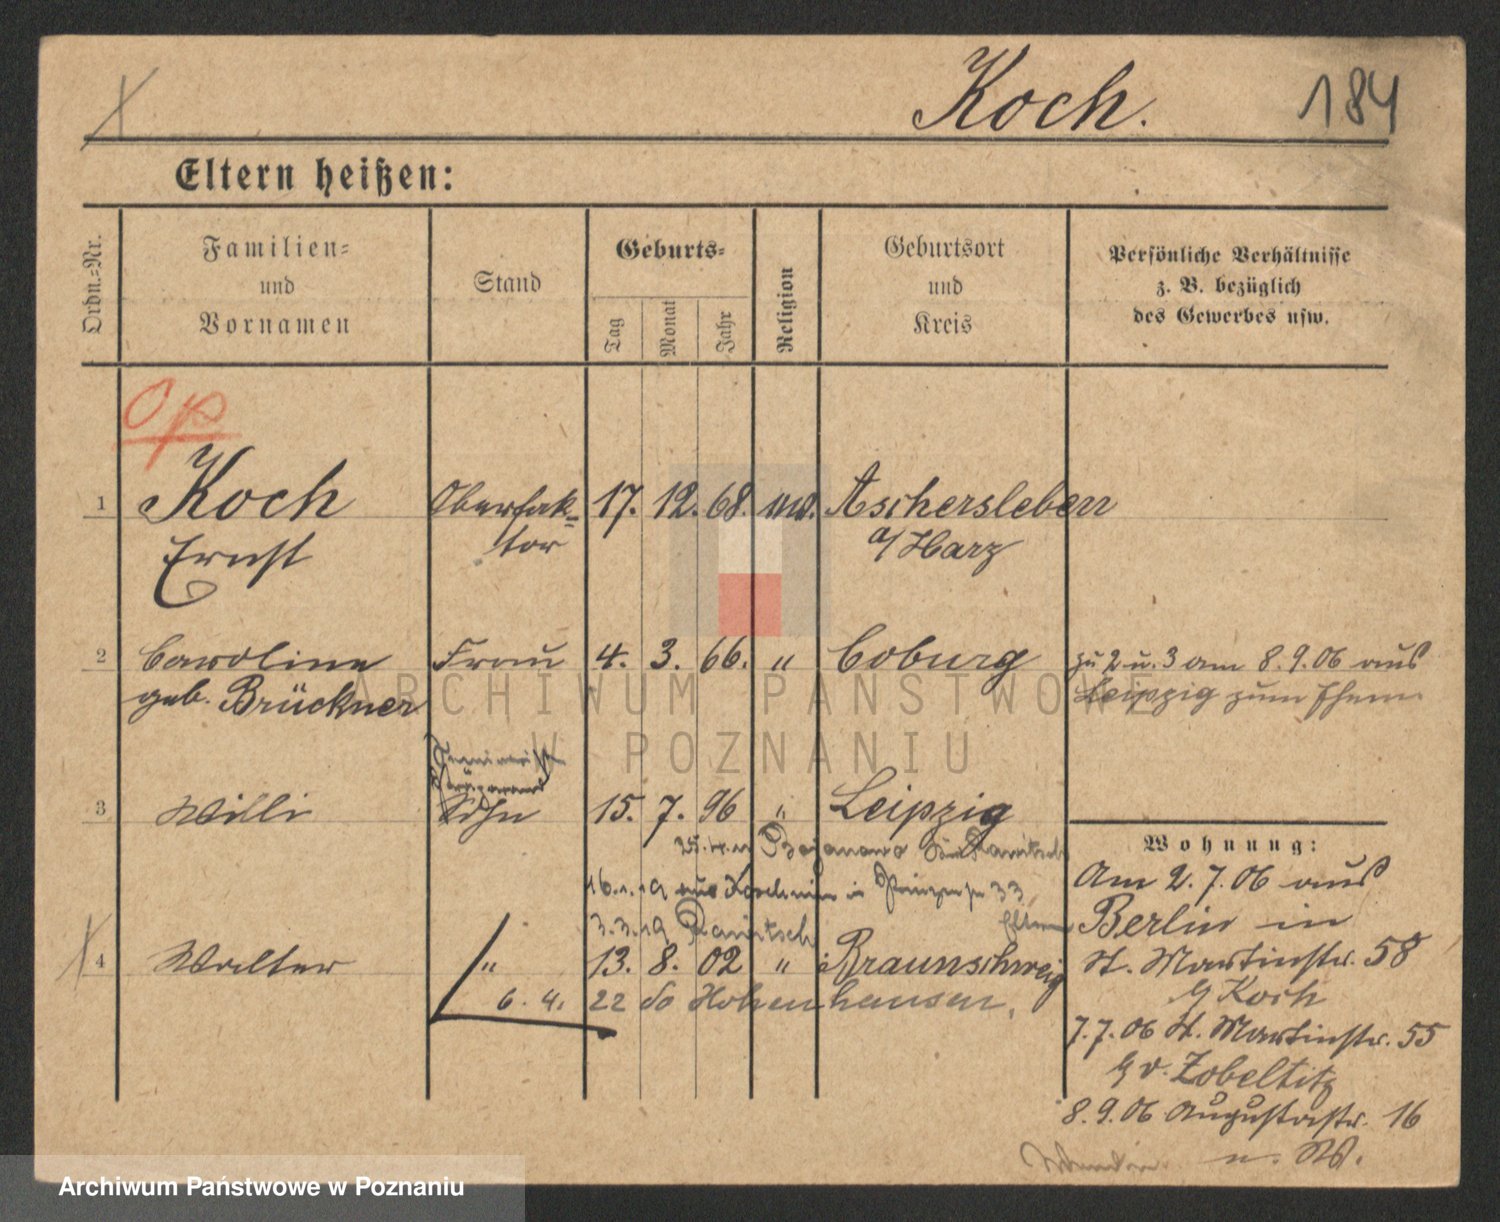 Koch. 184
Eltern heißen:
Ordn.=Nr.
Familien=
und
Vornamen
Stand
Geburts=
Tag
Monat
Jahr
Religion
Geburtsort
und
Kreis
Persönliche Verhältnisse
z. B. bezüglich
des Gewerbes usw.
1 Koch Oberfak= 17. 12. 68. Aschersleben
Ernst tor a/Harz
2 Caroline Frau 4. 3. 66. " Coburg zu 2 u. 3 am 8.9.06 aus
geb. Brückner Leipzig zum
3 Willi Sohn 15. 7. 96 " Leipzig
Bojanowo
Wohnung:
16.1.19 aus in 33
3.3.19
4 Walter " 13. 8. 02 " Braunschweig
6. 4. 22 Hohenhausen.
Am 2.7.06 aus
Berlin in
St. Martinstr. 58
Koch
7.7.06 St. Martinstr. 55
v. Zobeltitz
8.9.06 Augustastr. 16
ARCHIWUM PAŃSTWOWE
W POZNANIU
Archiwum Państwowe w Poznaniu